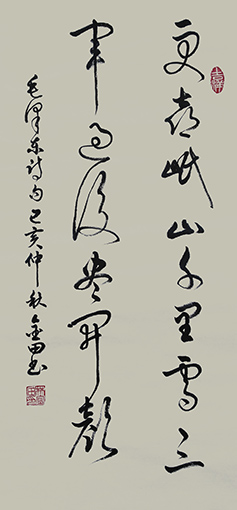 更喜岷山千里雪三
军过后尽开颜
毛泽东诗句己亥仲秋金田书